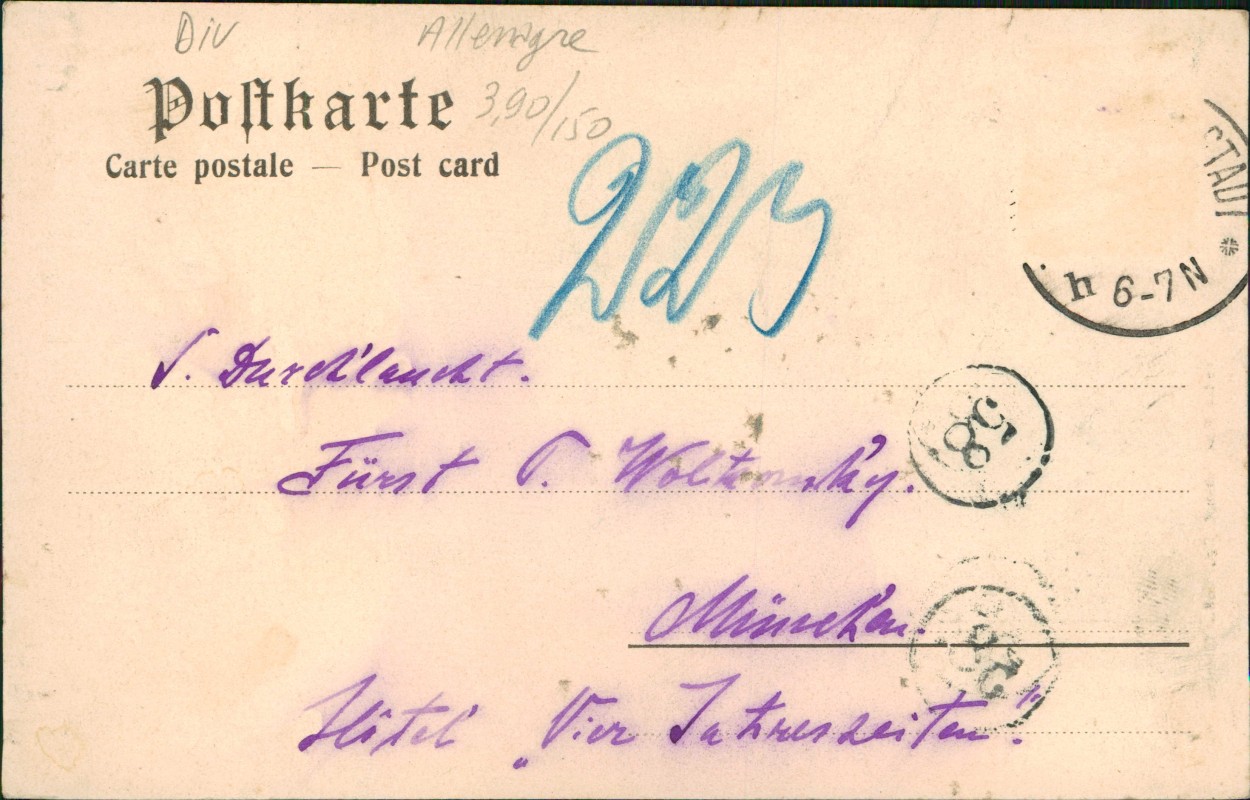 Div Allemagne
Postkarte 3,90/150
Carte postale — Post card
223
STADT
h 6-7 N
S. Durchlaucht.
Fürst
58
München.
58
Hôtel „Vier Jahreszeiten".